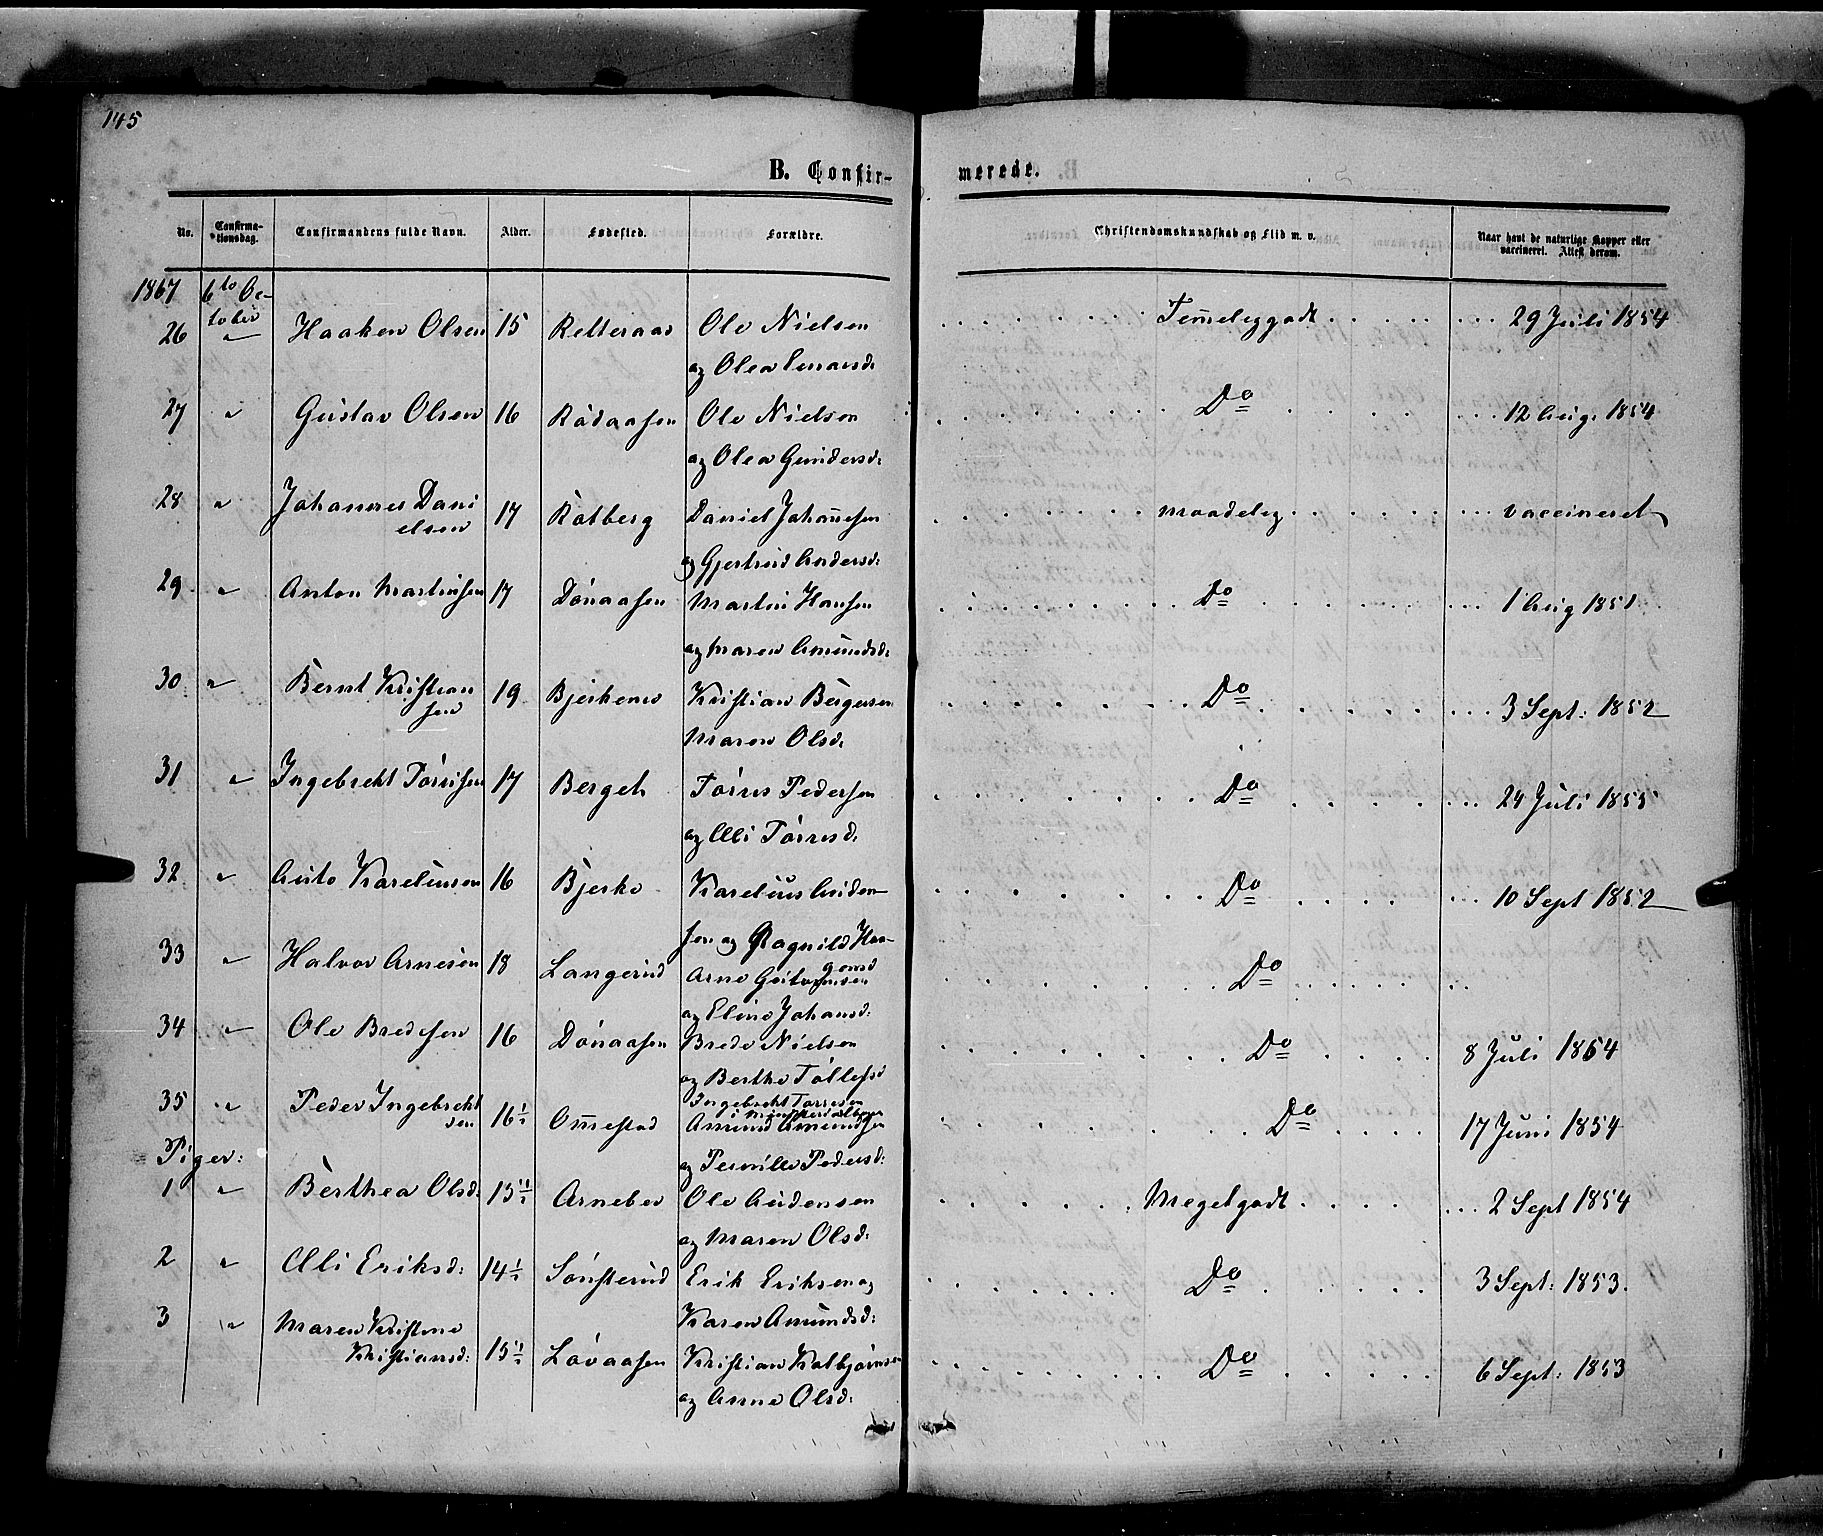 145
B. Confirmerede.
No. Confirmationsdag. Confirmandens fulde Navn. Alder. Fødested. Forældre. Christendomskundskab og Flid m. v. Naar havt de naturlige Kopper eller vaccineret. Attest derom.
1867 6to October
26 " Haaken Olsen 15 Ole Nielsen Temmeleggodt 29 Juli 1854
og Olea
27 " Gustav Olsen 16 Rødaasen Ole Nielsen Do 12 Aug. 1854
og Olea Gundersd:
28 " Johannes Dani 17 Kolberg Daniel Johannesen maadeleg vaccineret
elsen
og Gjertrud Andersd:
29 " Anton Martinsen 17 Dónaasen Martin Hansen Do 1 Aug 1851
og Maren Amundsd:
30 " Bernt Kristian 19 Kristian Bergersen Do 3 Sept: 1852
sen
Maren Olsd:
31 " Ingebreht Tórrisen 17 Berget Tórris Pedersen Do 24 Juli 1855
og Olli Tórresd:
32 " Kareliusen 16 Bjerke Karelius Anden Do 10 Sept 1852
sen og Ragnild Haa-
gensd
33 " Halvor Arnesen 18 Langerud Arne Gutormsen Do
og Eline Johansd:
34 " Ole Bredesen 16 Dónaasen Brede Nielsen Do 8 Juli 1864
og Berthe Tollefsd
35 " Peder Ingebreht 16½ Ommestad Ingebreht Torresen Do 17 Juni 1854
sen
Amund Amundsen
og Pernille Pedersd:
Piger:
1 " Berthea Olsd: 15½ Arneber Ole Audensen Megetgodt 2 Sept 1854
og Maren Olsd:
2 " Olli Eriksd: 14½ Sónsterud Erik Eriksen og Do 3 Sept: 1853.
Karen Amundsd:
3 " Maren Kristine 15½ Lóvaasen Kristian Kolbjórnsen Do 6 Sept: 1853
Kristiansd:
og Anne Olsd: